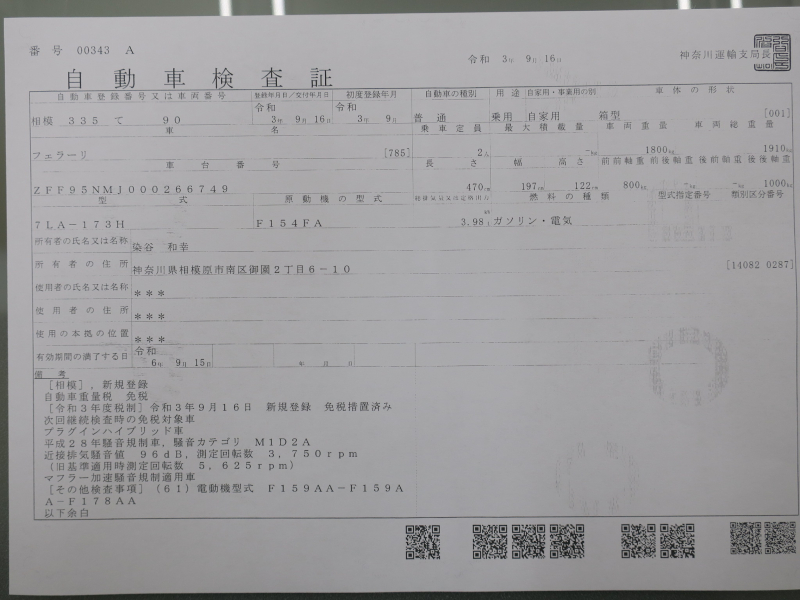 番号 00343 A
令和 3年 9月16日 神奈川運輸支局長
自動車検査証
自動車登録番号又は車両番号 登録年月日/交付年月日 初度登録年月 自動車の種別 用途 自家用・事業用の別 車体の形状
相模 335 て 90 令和 3年 9月 16日 令和 3年 9月 普通 乗用 自家用 箱型 [001]
車名 乗車定員 最大積載量 車両重量 車両総重量
フェラーリ [785] 2人 -kg 1800kg 1910kg
車台番号 長さ 幅 高さ 前前軸重 前後軸重 後前軸重 後後軸重
ZFF95NMJ000266749 470cm 197cm 122cm 800kg -kg -kg 1000kg
型式 原動機の型式 総排気量又は定格出力 燃料の種類 型式指定番号 類別区分番号
7LA-173H F154FA 3.98L ガソリン・電気
所有者の氏名又は名称 染谷 和幸
所有者の住所 神奈川県相模原市南区御園2丁目6-10 [14082 0287]
使用者の氏名又は名称 ***
使用者の住所 ***
使用の本拠の位置 ***
有効期間の満了する日 令和 6年 9月 15日 年 月 日
備考
[相模],新規登録
自動車重量税 免税
[令和3年度税制]令和3年9月16日 新規登録 免税措置済み
次回継続検査時の免税対象車
プラグインハイブリッド車
平成28年騒音規制車,騒音カテゴリ M1D2A
近接排気騒音値 96dB,測定回転数 3,750rpm
(旧基準適用時測定回転数 5,625rpm)
マフラー加速騒音規制適用車
[その他検査事項](61)電動機型式 F159AA-F159A
A-F178AA
以下余白